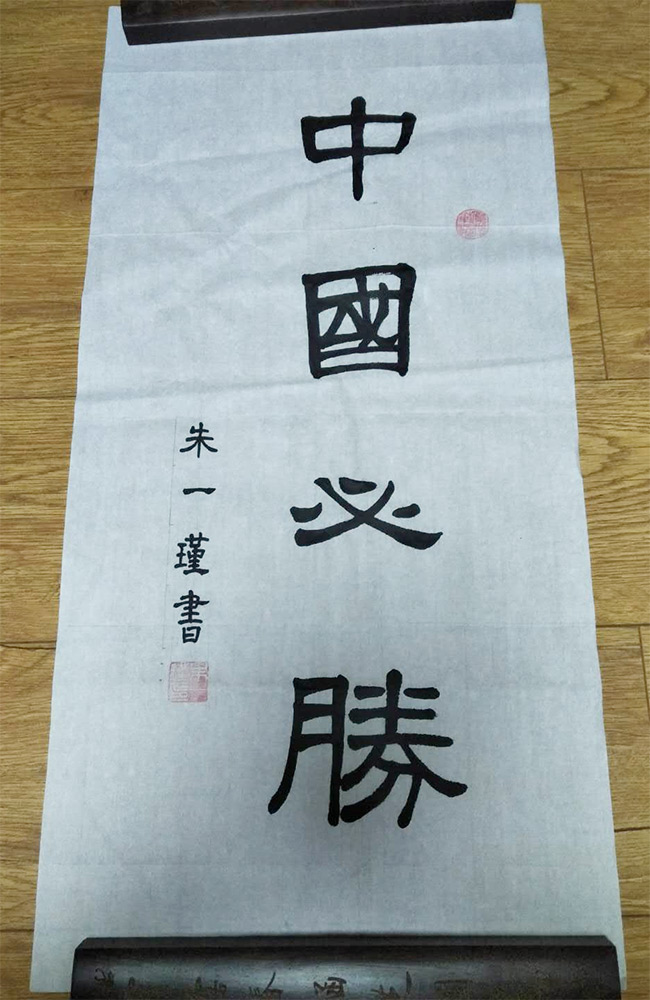 中國必勝
朱一瑾書